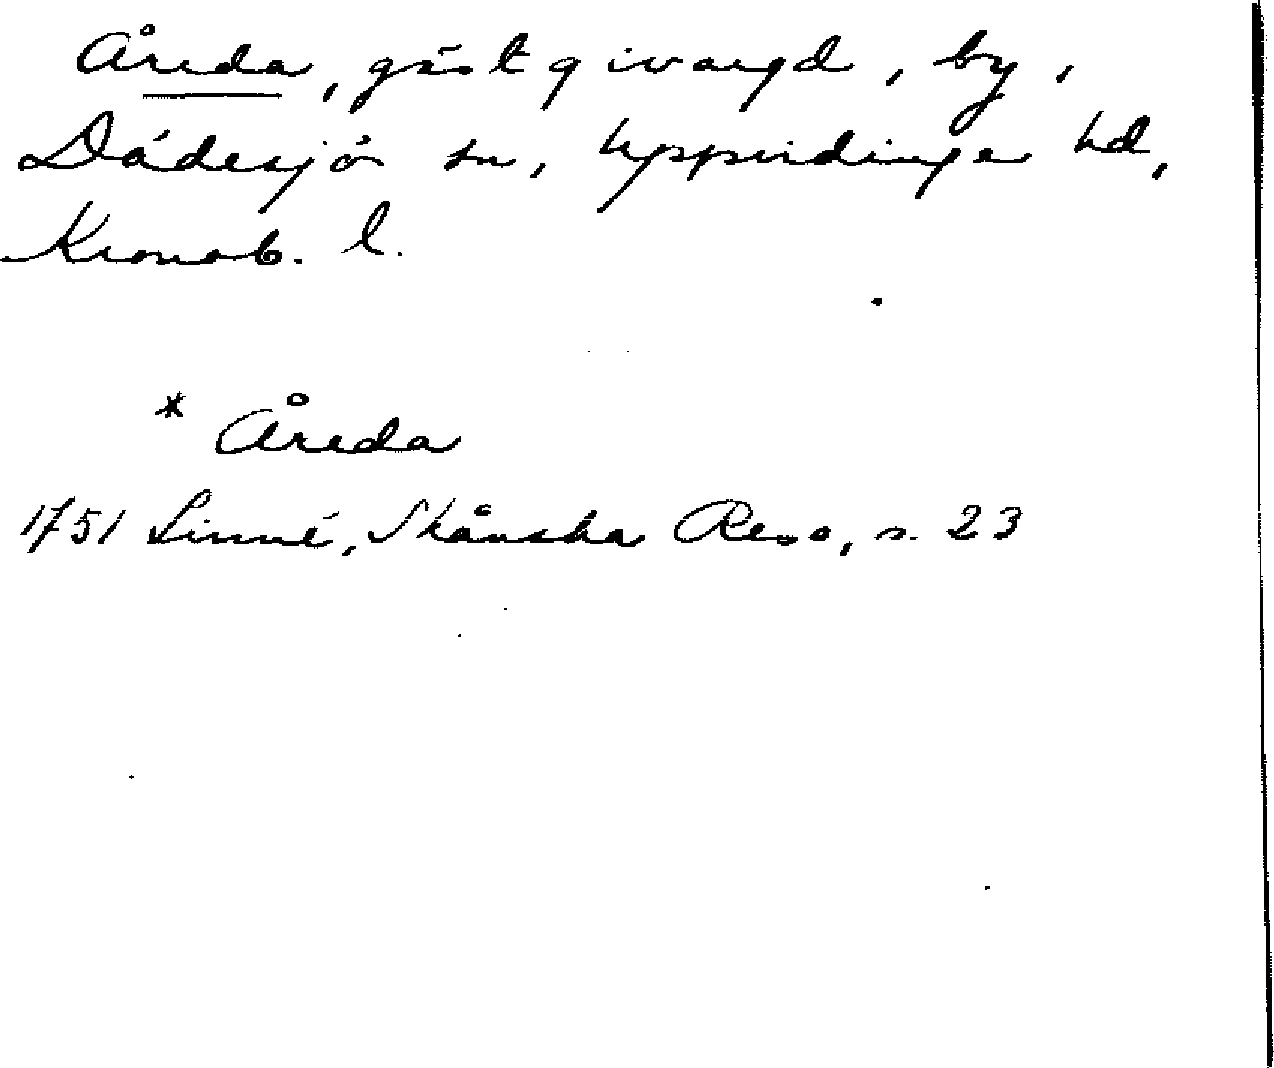 Åreda, gästgivargd, by,
Dädesjö sn, Uppvidinge hd,
Kronob. l.
* Åreda
1751 Linné, Skånska Resa, s. 23